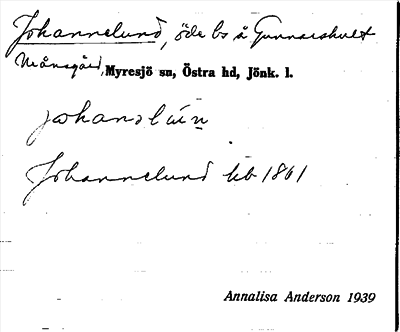 Johannelund, öde bs å Gunnarskult
Månsgård, Myresjö sn, Östra hd, Jönk. l.
johanəlún
Johannelund hfb 1861
Annalisa Anderson 1939